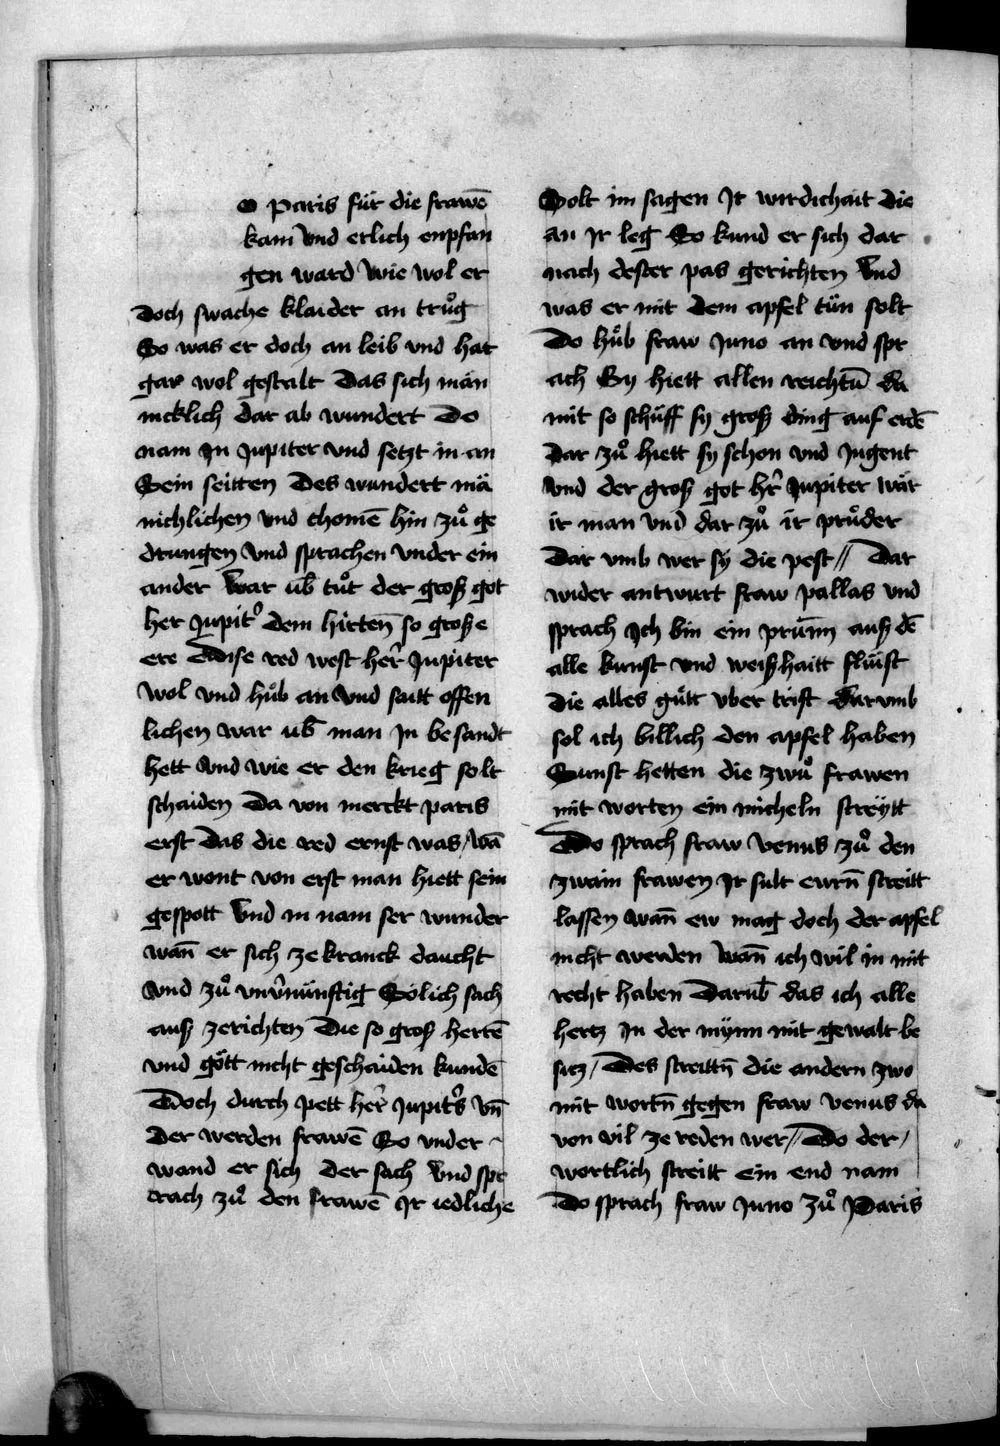 o paris für die frawē
kam vnd erlich enpfan
gen ward wie wol er
doch swache klaider an trůg
So was er doch an leib vnd hat
gar wol gestalt Das sich män
nicklich dar ab wundert Do
nam Jn Jupiter vnd setzt in an
Sein seitten Des wundert mä
nichlichen vnd chomē hin zů ge
drungen vnd sprachen vnder ein
ander War ub̄ tůt der groß got
her Jupit̉ dem hirten̄ so groß e
ere Dise red west her̄ Jupiter
wol vnd hůb an vnd sait offen
lichen war ub̄ man Jn besandt
hett vnd wie er den krieg solt
schaiden Da von merckt paris
erst Das die red ernst was / wā
er wont von erst man hiett sein
gespott Vnd in nam ser wunder
wan̄ er sich ze kranck daucht
vnd zů vnv̄nünftig Sölich sach
auß zerichten Die so groß hertē
vnd gött nicht geschaiden kundē
Doch durch pett her̄ Jupit̉s vn̄
Der werden frawē So vnder
wand er sich der sach Vnd spr
trach zů den frawē Jr iedliche
Solt im sagen Jr wirdichait die
an Jr leg So kund er sich dar
nach dester pas gerichten Vnd
was er mit dem apfel tün solt
Do hůb fraw Juno an vnd spr
ach Sy hiett allen reichtū da
mit so schüff sy groß ding auf erdē
Dar zů hiett sy schon vnd Jugent
vnd der groß got hr̄ Jupiter wär
ir man vnd dar zů ir průder
Dar vmb wer sy die pest // Dar
wider antwurt fraw pallas vnd
sprach Jch bin ein prün̄ auß dē
alle kunst vnd weißhaitt flüist
die alles gütt vber trift darvmb
sol ich billich den apfel haben
Sunst hetten die zwů frawen
mit worten ein micheln streÿtt
Do sprach fraw venus zů den
zwain frawen Jr sult ewrn̄ streitt
lassen wan̄ ew mag doch der apfel
nicht werden Wan̄ ich wil in mit
recht haben Darub̄ das ich alle
hertz Jn der mÿnn mit gewalt be
sitz / Des streittn̄ die andern zwo
mit wortn̄ gegen fraw venus da
von vil ze reden wer // Do der /
wortlich streitt ein end nam
Do sprach fraw Juno zů Paris